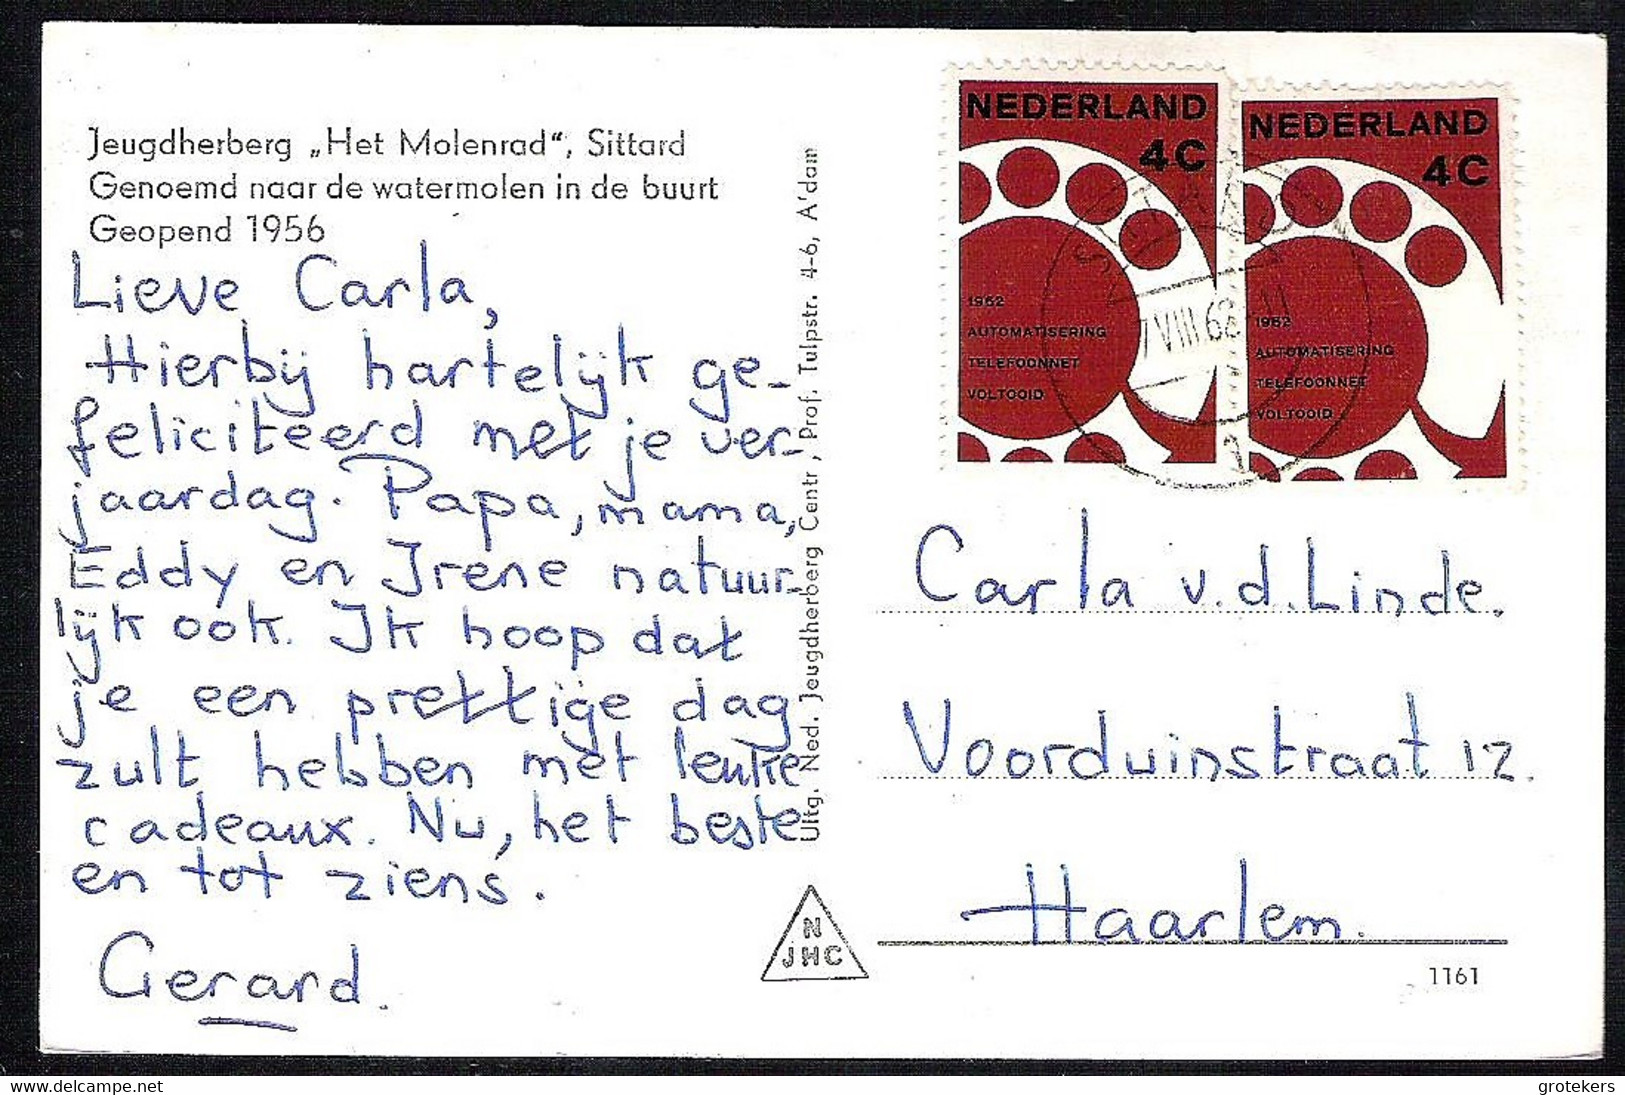 Jeugdherberg „Het Molenrad“, Sittard
Genoemd naar de watermolen in de buurt
Geopend 1956
Lieve Carla,
Hierbij hartelijk ge-
feliciteerd met je ver-
jaardag. Papa, mama,
Eddy en Irene natuur-
lijk ook. Ik hoop dat
je een prettige dag
zult hebben met leuke
cadeaux. Nu, het beste
en tot ziens.
Gerard.
Uitg. Ned. Jeugdherberg Centr., Prof. Tulpstr. 4-6, A'dam
N
JHC
NEDERLAND
4C
1962
AUTOMATISERING
TELEFOONNET
VOLTOOID
NEDERLAND
4C
1962
AUTOMATISERING
TELEFOONNET
VOLTOOID
SITTARD
7 VIII 62
1
Carla v.d. Linde.
Voorduinstraat 12.
Haarlem.
1161
www.delcampe.net
grotekers